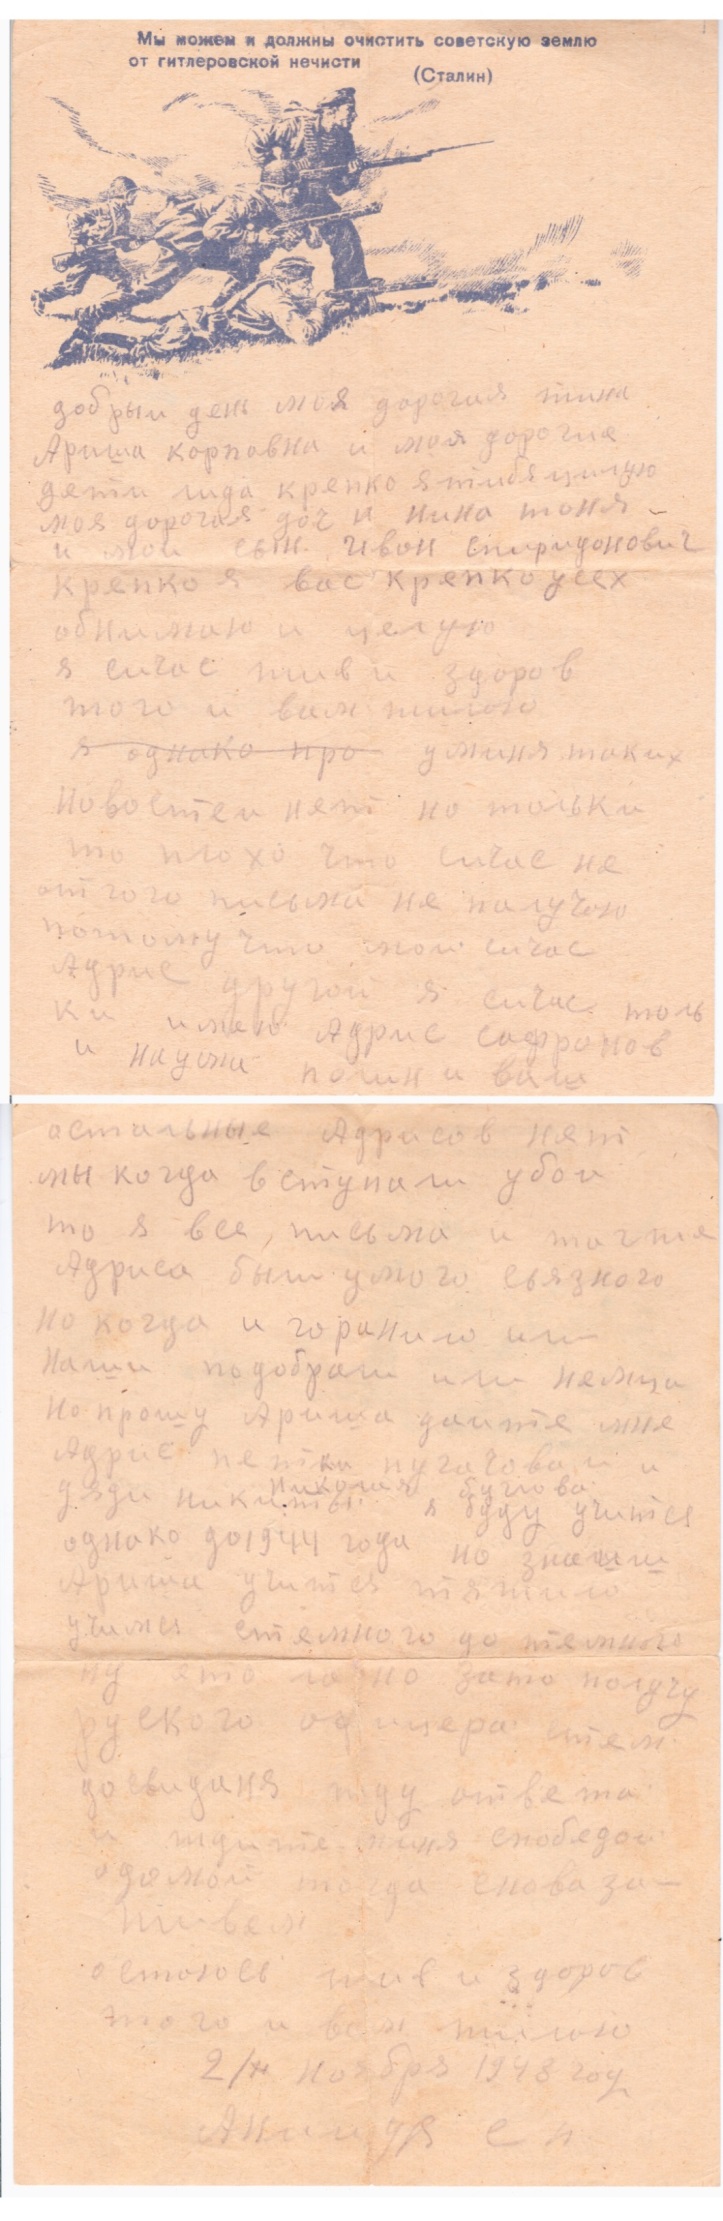 Мы можем и должны очистить советскую землю
от гитлеровской нечисти
(Сталин)
добрыи день моя дорогая жина
Ариша корповна и моя дорогие
дети лида крепко я тибя цилую
моя дорогая доч и нина тоня
и мои сын Ивон спиридонович
крепко я вас крепко усех
обнимаю и целую
я сичас жив и здоров
того и вам жилою
я однако про уминя таких
новостеи нет но только
то плохо что сичас не
от кого письма не получою
потому что мои сичас
Адрис другой я сичас толь
ки имею Адрис сафронов
и наума и ваш
остальные Адрисов нет
мы когда вступали убои
то я все, письма и также
Адриса были умого связного
но когда и го ранило или
наши подобрали или немци
но прошу Ариша даите мне
Адрис петки пугачова и
Николая бугрова
дяди никиты я буду учится
однако до 1944 года но знаиш
Ариша учится тяжило
учимся стемного до темного
ну ето ладно зато получу
руского офицера стем
досвиданя жду ответа
и ждите миня спобедои
одомои тогда снова за
живем
остоюсь жив и здоров
того и вам жилою
2/XI ноября 1943 год